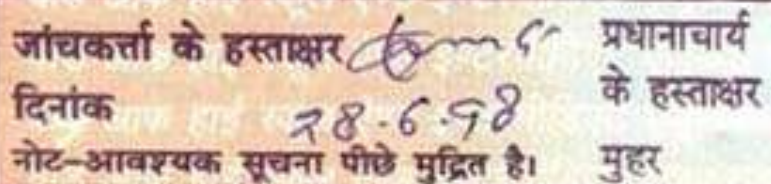 जांचकर्त्ता के हस्ताक्षर
प्रधानाचार्य
के हस्ताक्षर
दिनांक 28.6.98
नोट-आवश्यक सूचना पीछे मुद्रित है।
मुहर